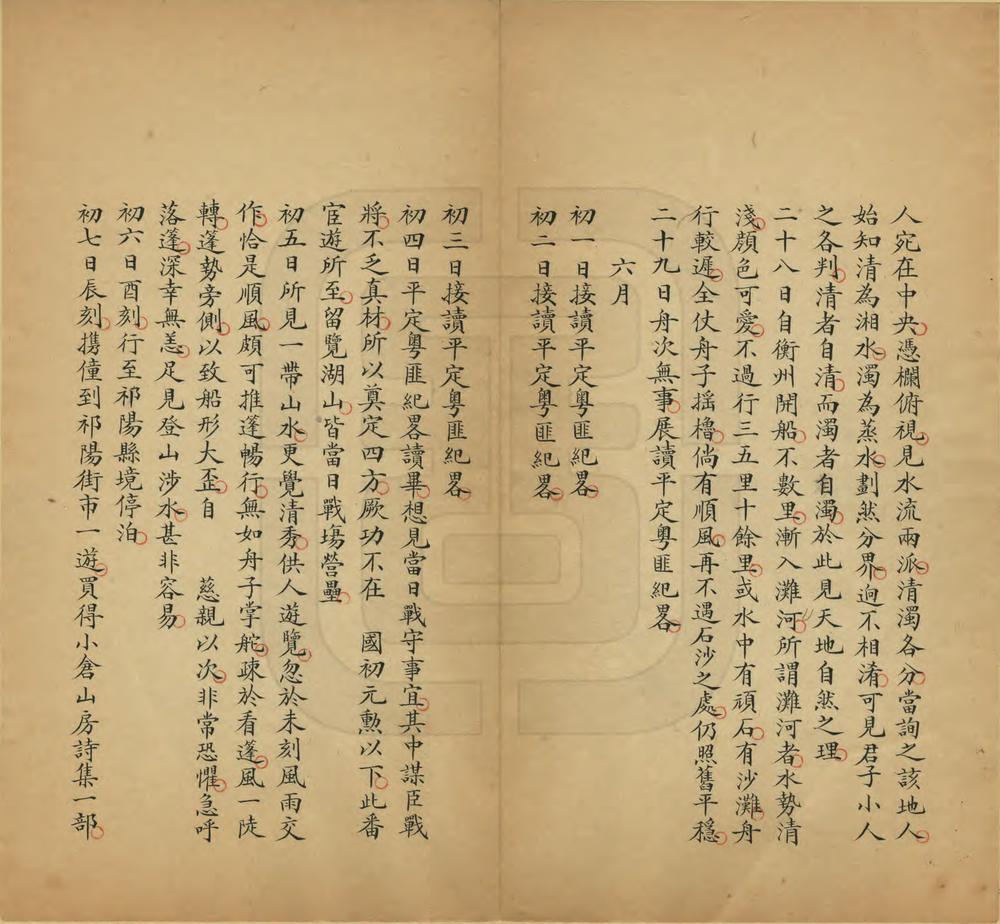 人宛在中央憑欄俯視見水流兩派清濁各分當詢之該地人
始知清為湘水濁為蒸水劃然分界逈不相淆可見君子小人
之各判清者自清而濁者自濁於此見天地自然之理
二十八日自衡州開船不數里漸入灘河所謂灘河者水勢清
淺顏色可愛不過行三五里十餘里或水中有頑石有沙灘舟
行較遲全仗舟子揺櫓倘有順風再不遇石沙之處仍照舊平穩
二十九日舟次無事展讀平定粵匪紀畧
六月
初一日接讀平定粵匪紀畧
初二日接讀平定粵匪紀畧
初三日接讀平定粵匪紀畧
初四日平定粵匪紀畧讀畢想見當日戰守事宜其中謀臣戰
將不乏真材所以奠定四方厥功不在 國初元勳以下此番
宦遊所至留覽湖山皆當日戰場營壘
初五日所見一帶山水更覺清秀供人遊覽忽於未刻風雨交
作恰是順風頗可推蓬暢行無如舟子掌舵疎於看蓬風一陡
轉蓬勢旁側以致船形大歪自 慈親以次非常恐懼急呼
落蓬深幸無恙足見登山涉水甚非容易
初六日酉刻行至祁陽縣境停泊
初七日辰刻攜僮到祁陽街市一遊買得小倉山房詩集一部